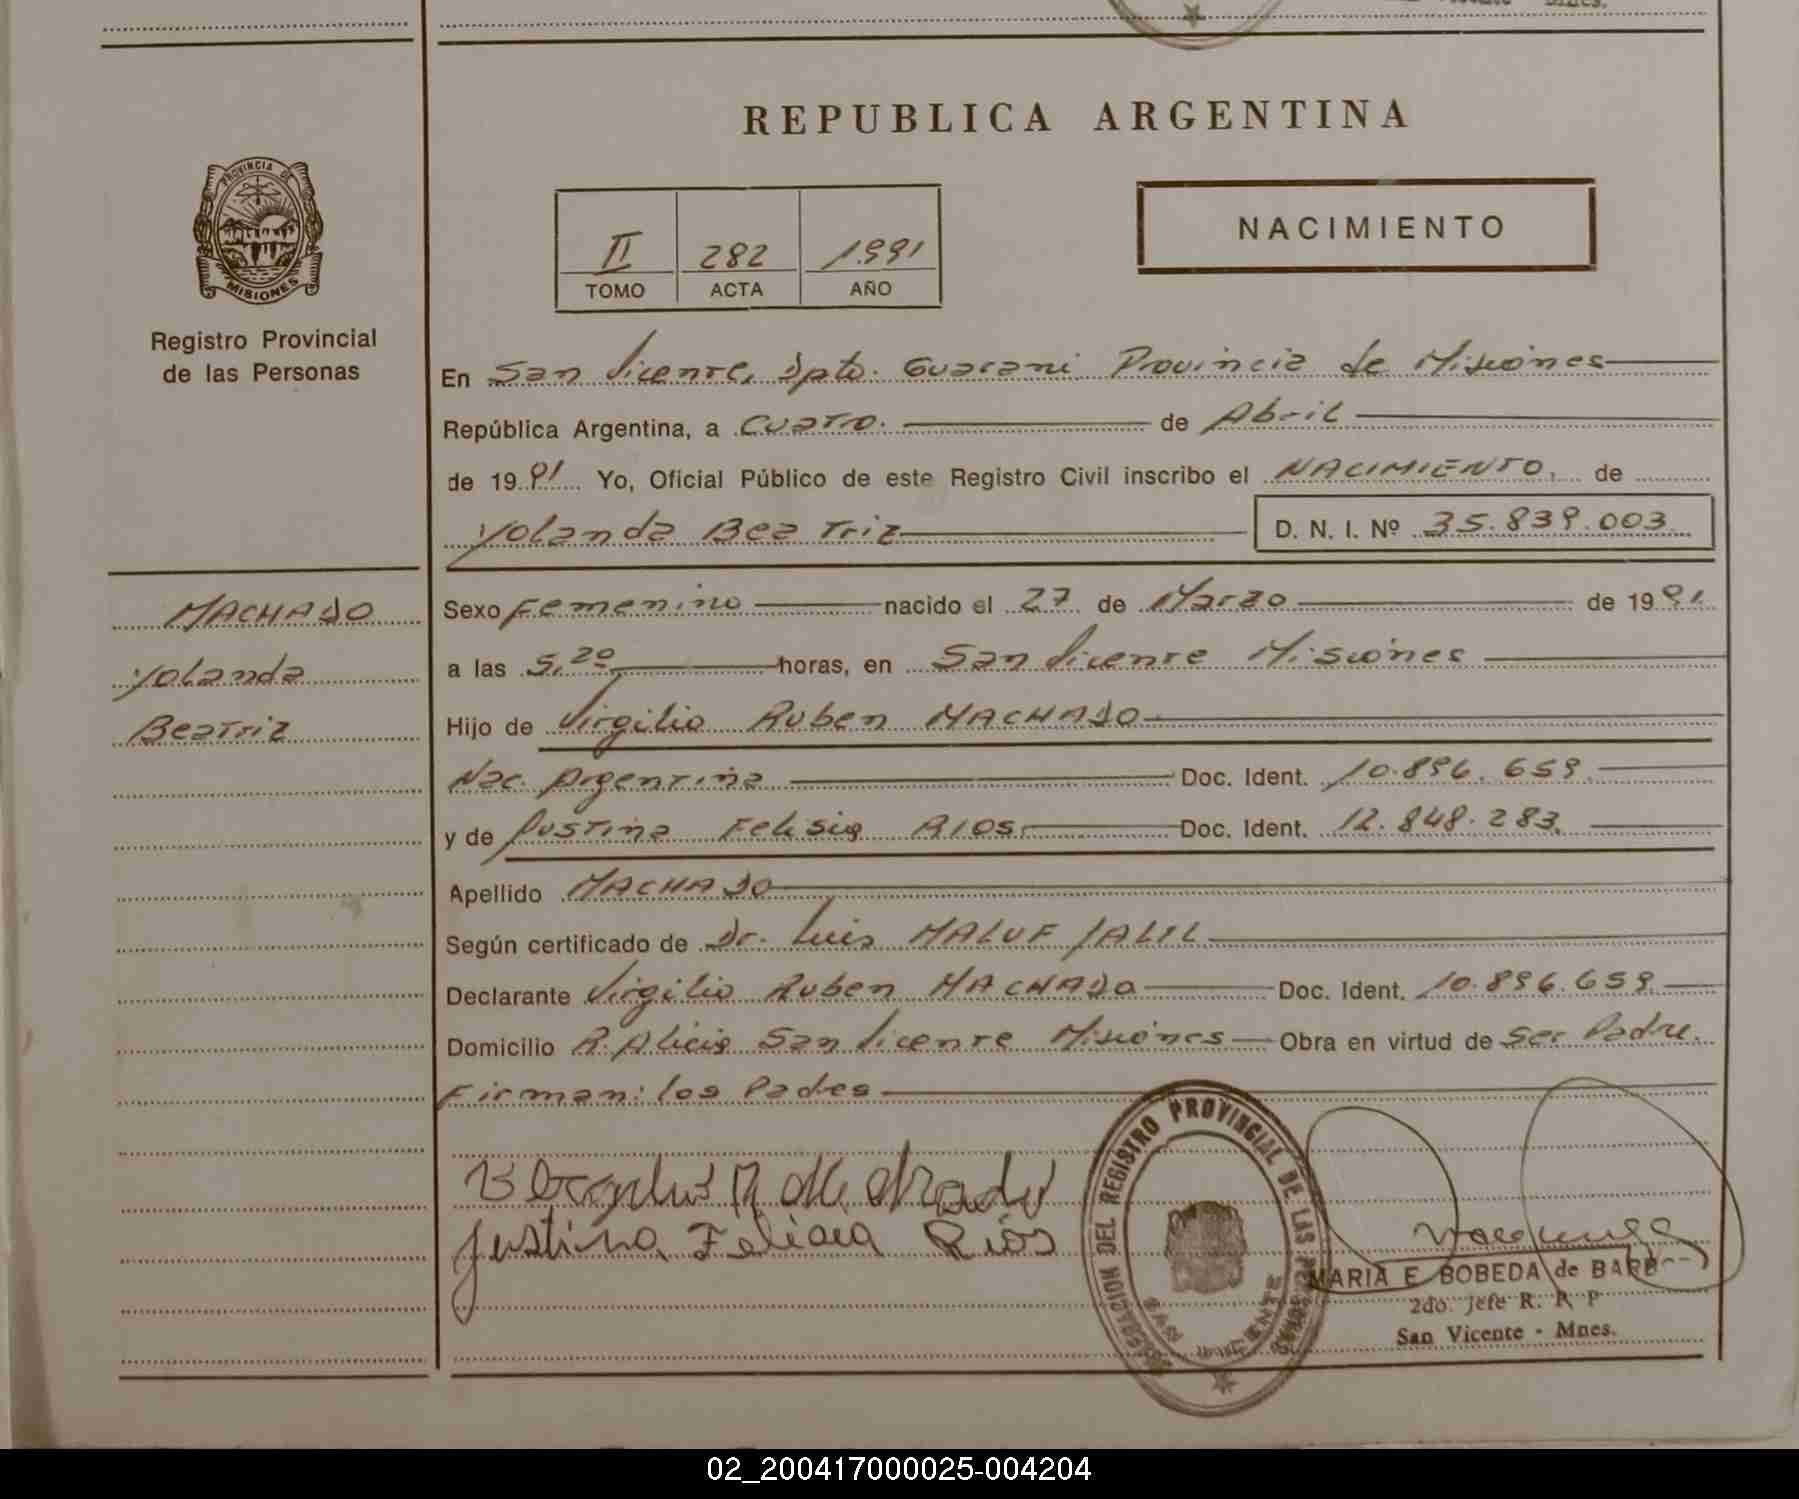 REPUBLICA ARGENTINA
PROVINCIA DE
MISIONES
Registro Provincial
de las Personas
II 282 1.991
TOMO ACTA AÑO
NACIMIENTO
En San Vicente, Dpto. Guarani Provincia de Misiones
República Argentina, a Cuatro. de Abril
de 1991 Yo, Oficial Público de este Registro Civil inscribo el NACIMIENTO, de
Yolanda Beatriz D. N. I. Nº 35.839.003
MACHADO
Yolanda
Beatriz
Sexo Femenino nacido el 27 de Marzo de 1991.
a las 5,20 horas, en San Vicente Misiones
Hijo de Virgilio Ruben MACHADO
Nac. Argentina Doc. Ident. 10.896.659
y de Justina Felisia RIOS Doc. Ident. 12.848.283.
Apellido MACHADO
Según certificado de Dr. Luis MALUF JALIL
Declarante Virgilio Ruben MACHADO Doc. Ident. 10.896.659.
Domicilio R. Alicia San Vicente Misiones Obra en virtud de Ser Padre.
Firman: los Padres
Machado
Justina Feliciea Rios
DELEGACION DEL REGISTRO PROVINCIAL DE LAS PERSONAS
SAN VICENTE
MARIA E. BOBEDA de BARB
2do. Jefe R. P. P
San Vicente - Mnes.
02_200417000025-004204